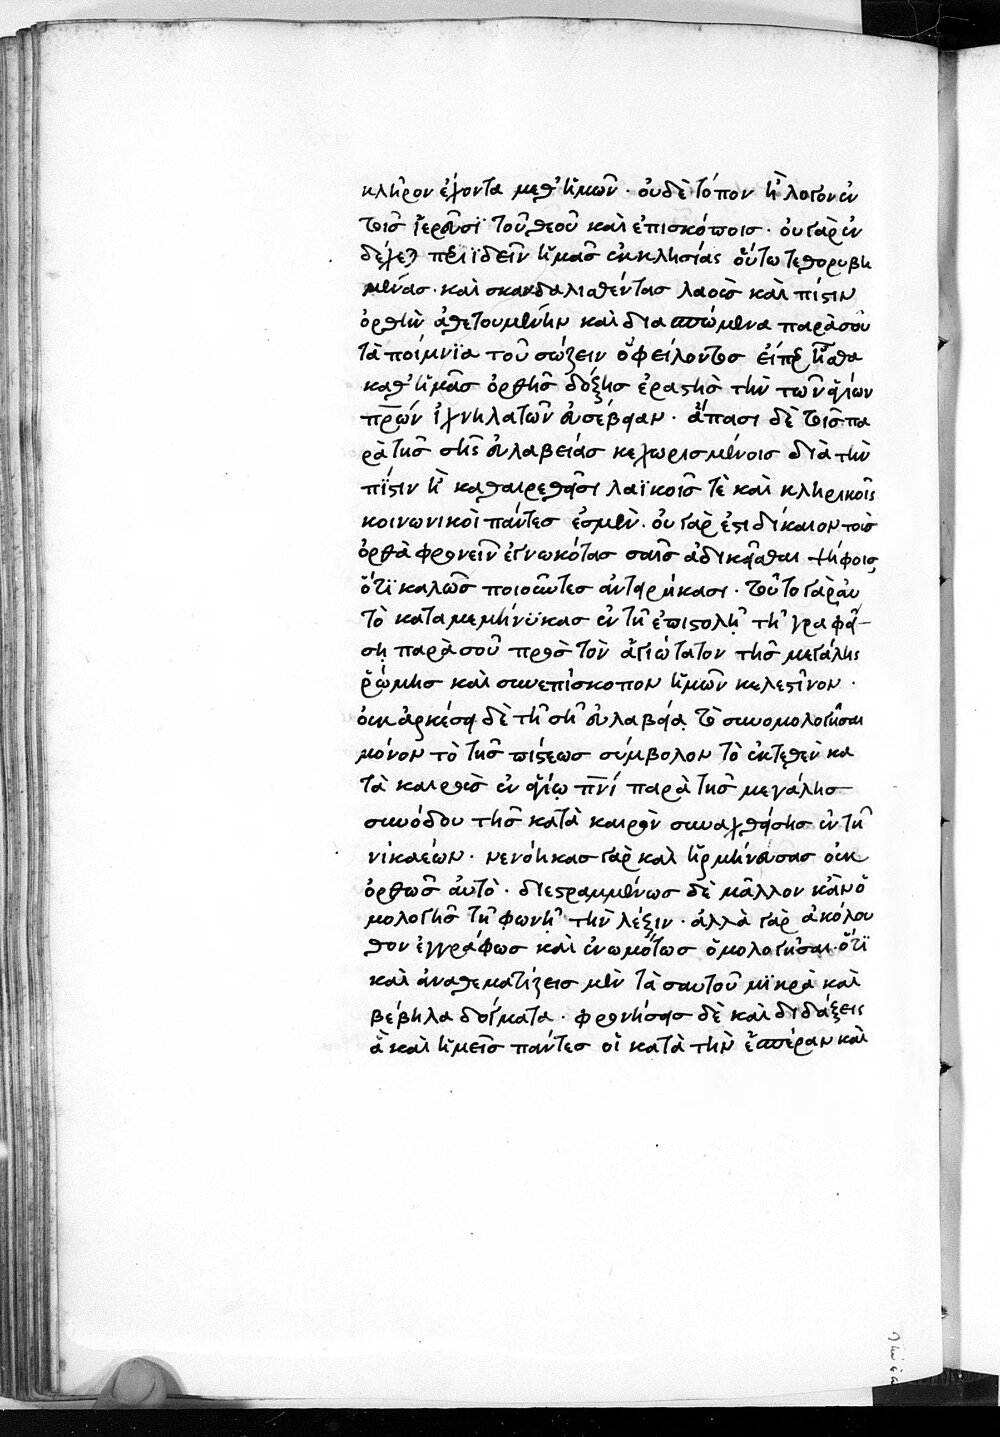 κλῆρον ἔχοντα μεθ' ἡμῶν· οὐδὲ τόπον ἢ λόγον ἐν
τοῖς ἱερεῦσϊ τοῦ θεοῦ καὶ ἐπισκόποις· οὐ γὰρ ἐν
δέχεται περιϊδεῖν ἡμᾶς ἐκκλησίας οὕτω τεθορυβη
μένας· καὶ σκανδαλισθέντας λαοὺς καὶ πίστιν
ὀρθὴν ἀθετουμένην καὶ διασπώμενα παρὰ σοῦ
τὰ ποίμνϊα τοῦ σώζειν ὀφείλοντος εἴπερ ἦσθα
καθ' ἡμᾶς ὀρθῆς δόξης ἐραστὴς τὴν τῶν ἁγίων
π̅ρων ἰχνηλατῶν εὐσέβειαν· ἅπασι δὲ τοῖς πα
ρὰ τῆς σῆς εὐλαβείας κεχωρισμένοις διὰ τὴν
πίστιν ἢ καθαιρεθεῖσι λαϊκοῖς τὲ καὶ κληρικοῖς
κοινωνικοὶ πάντες ἐσμὲν· οὐ γάρ ἐστι δίκαιον τοὺς
ὀρθὰ φρονεῖν ἐγνωκότας σαῖς ἀδικεῖσθαι ψήφοις
ὅτϊ καλῶς ποιοῦντες ἀντειρήκασι· τοῦτο γὰρ αὐ
τὸ καταμεμήνϋκας ἐν τῇ ἐπιστολῇ τῇ γραφεί-
σῃ παρὰ σοῦ πρὸς τὸν ἁγιώτατον τῆς μεγάλης
ῥώμης καὶ συνεπίσκοπον ἡμῶν κελεστῖνον·
οὐκ ἀρκέσει δὲ τῇ σῇ εὐλαβείᾳ τὸ συνομολογῆσαι
μόνον τὸ τῆς πίστεως σύμβολον τὸ ἐκτεθὲν κα
τὰ καιροὺς ἐν ἁγίῳ π̅νί παρὰ τῆς μεγάλης
συνόδου τῆς κατὰ καιρὸν συναχθείσης ἐν τῇ
νίκαέων· νενόηκας γὰρ καὶ ἡρμήνευσας οὐκ
ὀρθῶς αὐτὸ· διεστραμμένως δὲ μᾶλλον κἂν ὁ
μολογῆς τῇ φωνῇ τὴν λέξιν· ἀλλὰ γὰρ ἀκόλου
θον ἐγγράφως καὶ ἐνωμότως ὁμολογῆσαι· ὅτϊ
καὶ ἀναθεματίζεις μὲν τὰ σαυτοῦ μϊκρὰ καὶ
βέβηλα δόγματα· φρονήσεις δὲ καὶ διδάξεις
ἃ καὶ ἡμεῖς πάντες οἱ κατὰ τὴν ἑσπέραν καὶ